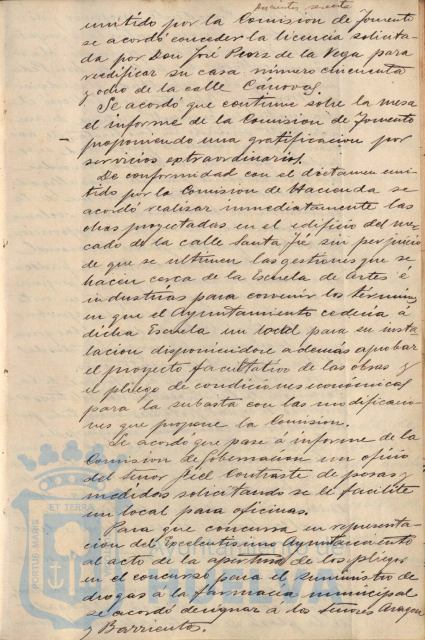 emitido por la Comision de Fomento
se acordó conceder la licencia solicita-
da por Don José Perez de la Vega para
reedificar su casa número cincuenta
y ocho de la calle Cánovas.
Se acordó que continue sobre la mesa
el informe de la Comision de Fomento
proponiendo una gratificacion por
servicios extraordinarios.
De conformidad con el dictamen emi-
tido por la Comision de Hacienda se
acordó realizar inmediatamente las
obras proyectadas en el edificio del mer-
cado de la calle Santa Fé sin perjuicio
de que se ultimen las gestiones que se
hacen cerca de la Escuela de Artes é
industrias para convenir los términos
en que el Ayuntamiento cederia á
dicha Escuela un local para su insta-
lacion disponiendose además aprobar
el proyecto facultativo de las obras y
el pliego de condiciones económicas
para la subasta con las modificacio-
nes que propone la Comision.
Se acordó que pase á informe de la
Comision de Gobernacion un oficio
del Señor Fiel Contraste de pesas y
medidas solicitando se le facilite
un local para oficinas.
Para que concurra en representa-
cion del Excelentisimo Ayuntamiento
al acto de la apertura de los pliegos
en el concurso para el suministro de
drogas á la farmacia municipal
se acordó designar á los Señores Aragon
y Barrientos.
ET TERRA
PORTUS MARIS
Ayuntamiento de